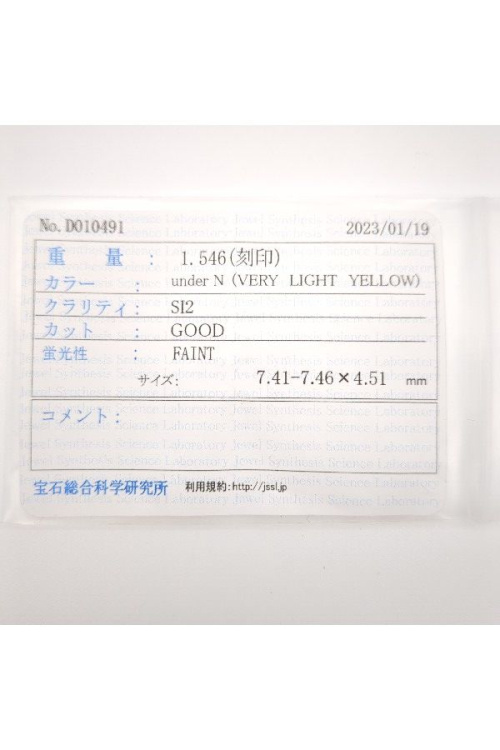 No. D010491 2023/01/19
重量 : 1.546(刻印)
カラー : under N (VERY LIGHT YELLOW)
クラリティ : SI2
カット : GOOD
蛍光性 : FAINT
サイズ: 7.41-7.46×4.51 mm
コメント :
宝石総合科学研究所 利用規約:http://jssl.jp